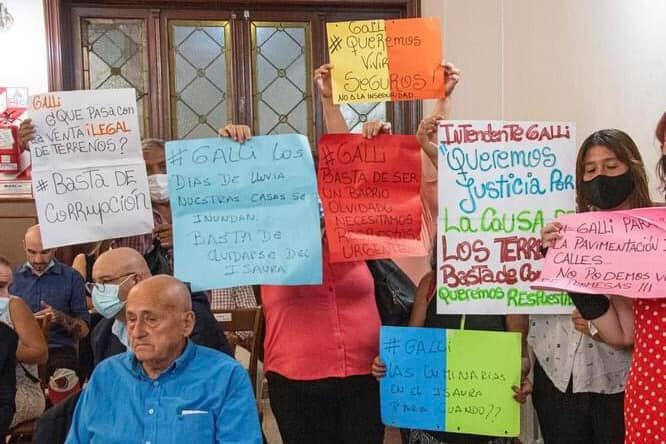 GALLi
¿QUE PASA CON
LA VENTA iLEGAL
DE TERRENOS?
#BASTA DE
CORRUPCIÓN
#GALLI LOS
DIAS DE LLUVIA
NUESTRAS CASAS SE
INUNDAN.
BASTA DE
DEL
ISAURA
GALLi
#QUEREMOS
VIVIR
SEGUROS!
NO A LA INSEGURIDAD.
#GALLI
BASTA DE SER
UN BARRIO
OLVIDADO
NECESITAMOS
URGENTE
INTENDENTE GALLI
"QUEREMOS
JUSTICIA POR
LA CAUSA DE
LOS
BASTA DE
QUEREMOS
#GALLI
LAS LUMINARIAS
EN EL ISAURA
PARA CUANDO??
GALLI PARA
LA PAVIMENTACIÓN
CALLES...
NO PODEMOS
!!!